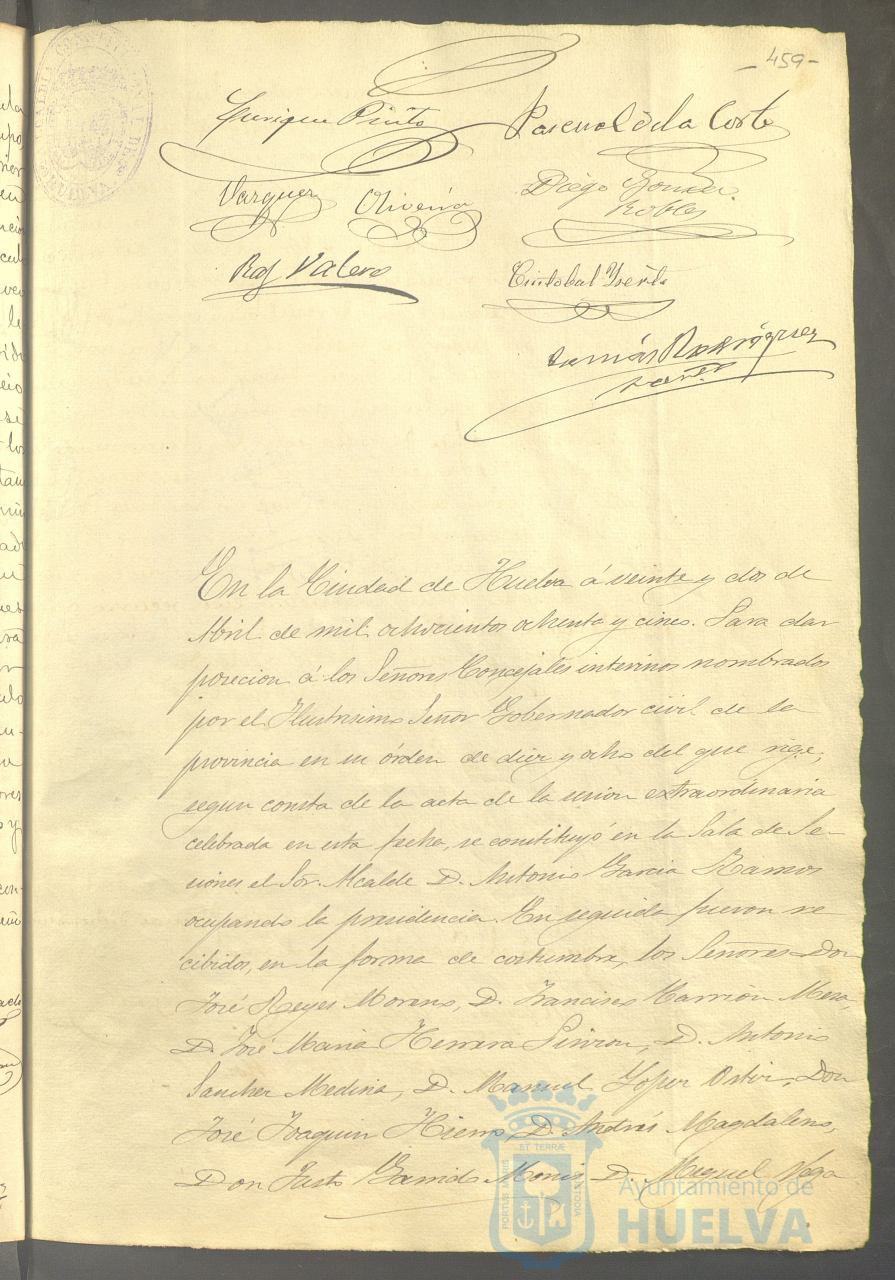 - 459 -
Enrique Pinto Pascual de la Corte
Vazquez Oliveira Diego Gonzalez
Robles
Raf Valero Cristobal
Tomás Rodríguez
En la Ciudad de Huelva á veinte y dos de
Abril de mil ochocientos ochenta y cinco. Para dar
posecion á los Señores Concejales interinos nombrados
por el Ilustrisimo Señor Gobernador civil de la
provincia en su órden de diez y ocho del que rige,
segun consta de la acta de la sesion extraordinaria
celebrada en esta fecha, se constituyó en la Sala de Se-
siones el Sor. Alcalde D. Antonio Garcia Ramos
ocupando la presidencia. En seguida fueron re
cibidos, en la forma de costumbre, los Señores Don
José Reyes Moreno, D. Francisco Carrión Mesa,
D. José Maria Herrera D. Antonio
Sanchez Medina, D. Manuel López Don
José Joaquin Hierro, D. Andrés Magdaleno,
Don Justo Garrido D. Miguel Vega
PORTUS MARIS
ET TERRÆ
CUSTODIA
Ayuntamiento de
HUELVA